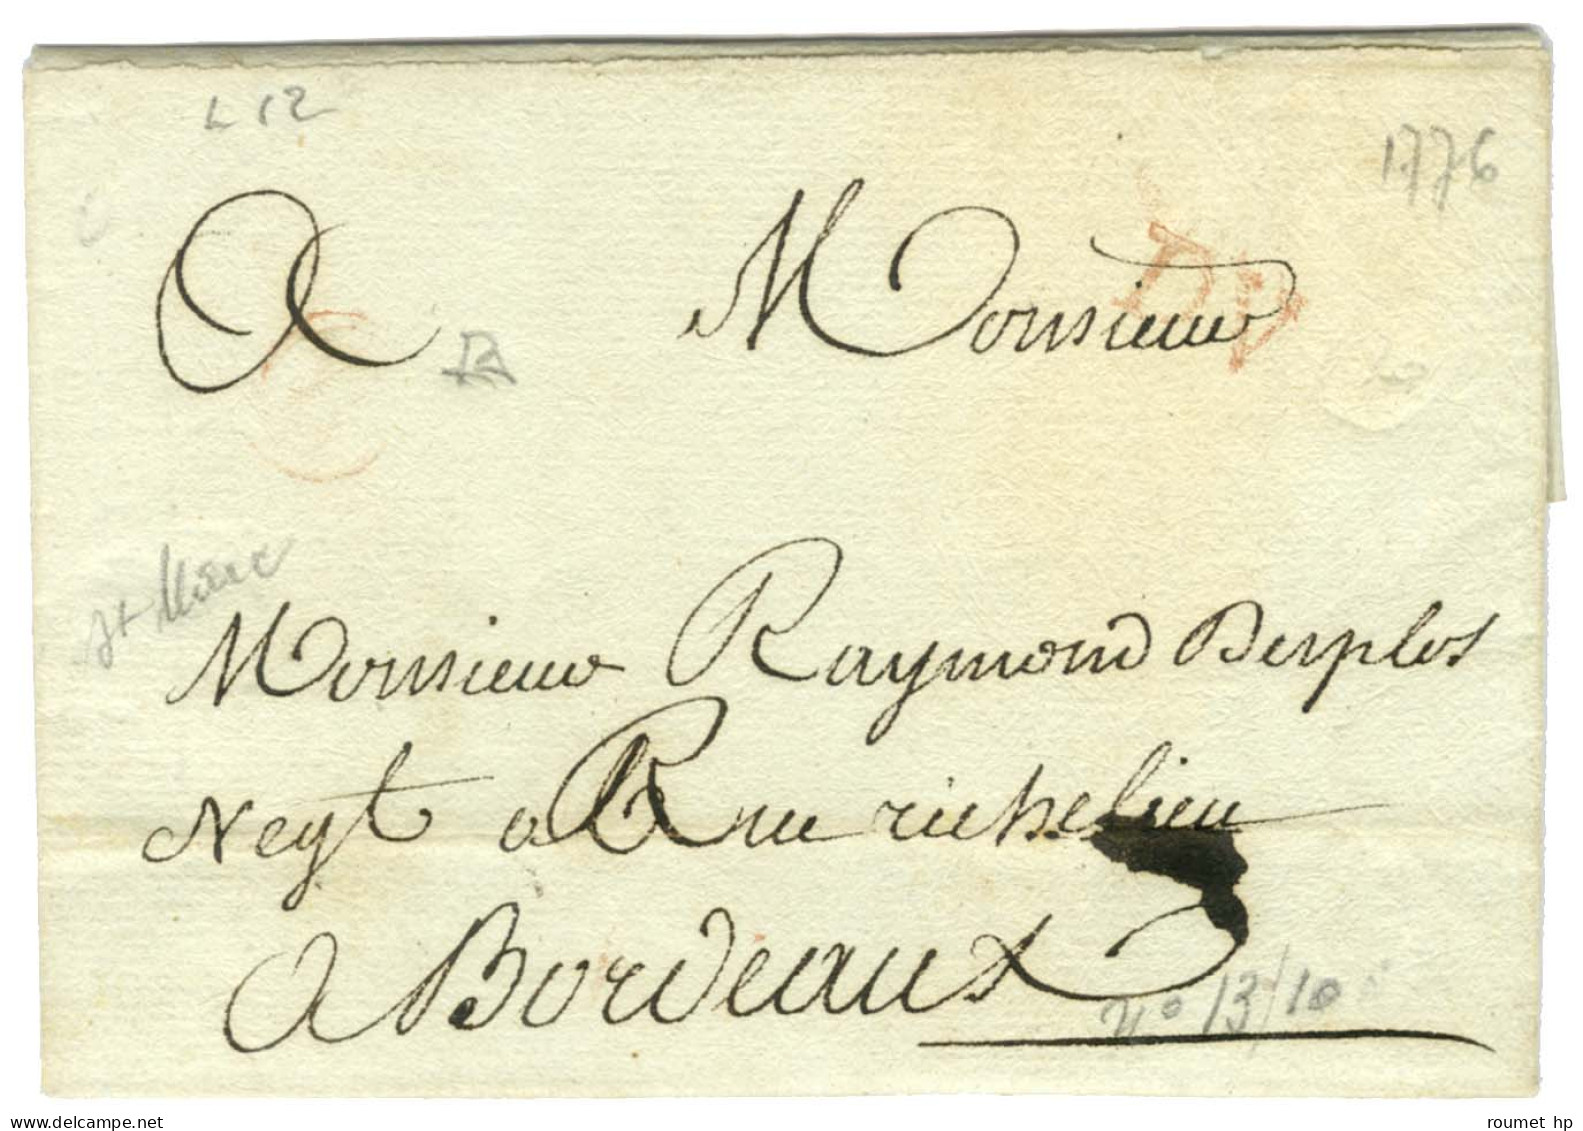 L 12
1776
A Monsieur
St Marc
Monsieur Raymond Desplos
Negt a Rue richelieu
a Bordeaux
n° 13/10
www.delcampe.net
roumet hp